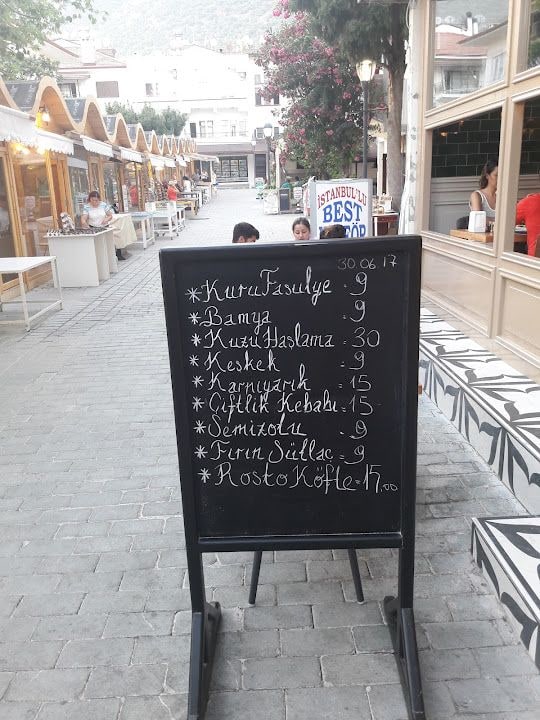 İSTANBUL'U
BEST
30.06.17
*Kuru Fasulye = 9
*Bamya = 9
*Kuzu Haslama = 30
*Keskek = 9
*Karnıyarık = 15
*Çiftlik Kebabı = 15
*Semizotu = 9
*Fırın Sütlaç = 9
*Rosto Köfte = 15,00